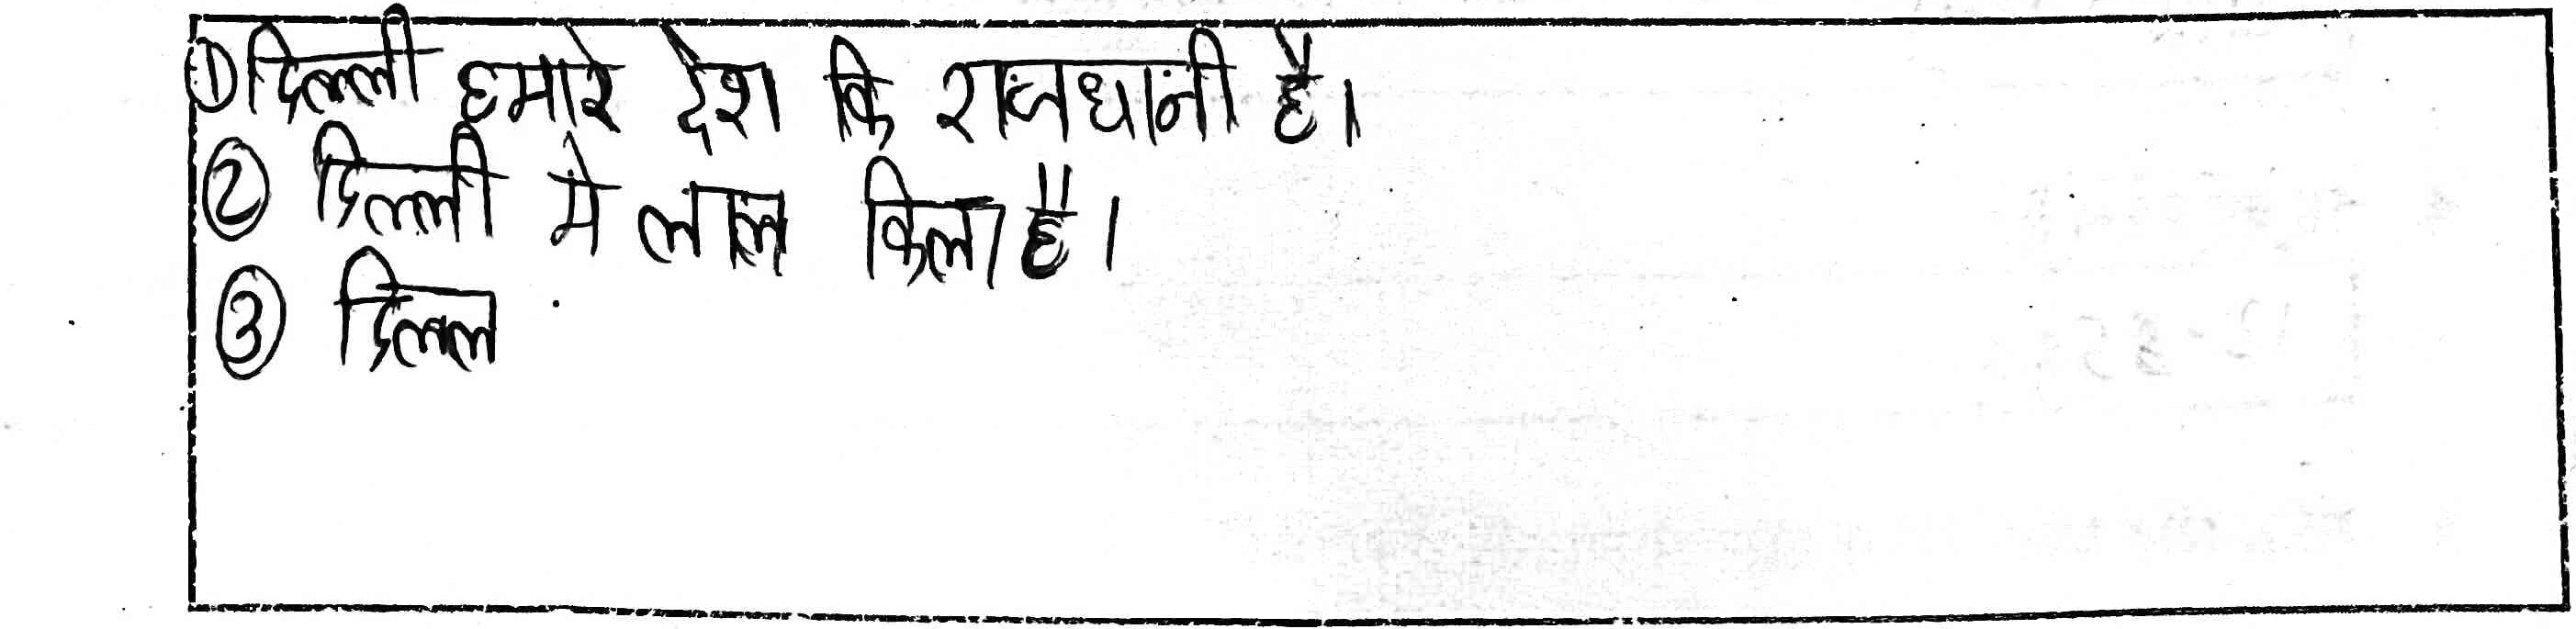 ① दिल्ली हमारे देश कि राजधानी है।
② दिल्ली मे लाल किला है।
③ दिल्ल